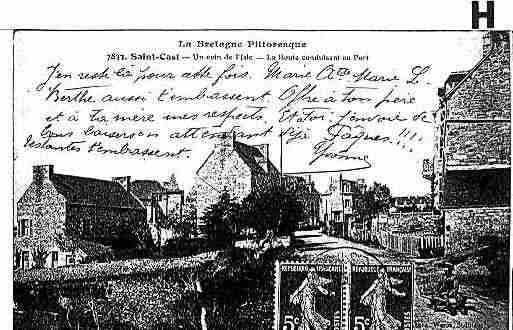 H
La Bretagne Pittoresque
7811. Saint-Cast — Un coin de l'Isle — La Route conduisant au Port
J'en reste là pour cette fois. Marie Marie L.
Berthe aussi t'embrassent. Offre à ton père
et à ta mère mes respects. Et à toi j'envoie de
bons baisers en attendant Jacques !!!
t'embrassent. Yvonne
REPUBLIQUE FRANÇAISE REPUBLIQUE FRANÇAISE
5c 5c